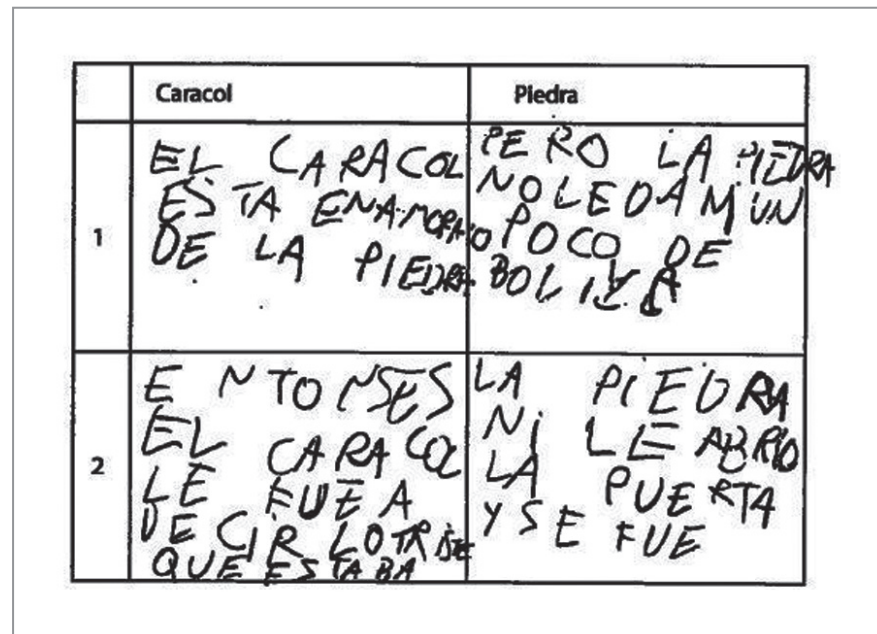 Caracol
Piedra
1
EL CARACOL
ESTA ENAMORADO
DE LA PIEDRA
PERO LA PIEDRA
NO LE DA NI UN
POCO DE
BOLIYA
2
ENTONSES
EL CARACOL
LE FUE A
DECIR LO TRISTE
QUE ESTABA
LA PIEDRA
NI LE ABRIO
LA PUERTA
Y SE FUE